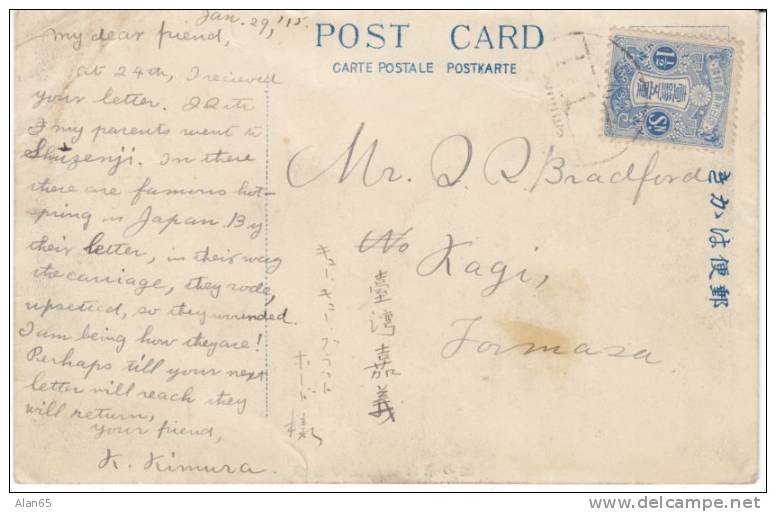 Jan. 29, '15.
My dear friend,
at 24th, I recieved
your letter. 22th
I my parents went to
Shuzenji. In there
there are famous hot-
spring in Japan By
their letter, in their way
the carriage, they rode,
upsetied, so they wounded.
I am being how they are!
Perhaps till your next
letter will reach they
will return,
your friend,
K. Kimura.
POST CARD
CARTE POSTALE POSTKARTE
Mr. Bradford
No Kagi,
Formasa.
臺灣嘉義
様
きかは便郵
1½
Sn
Alan65
www.delcampe.net